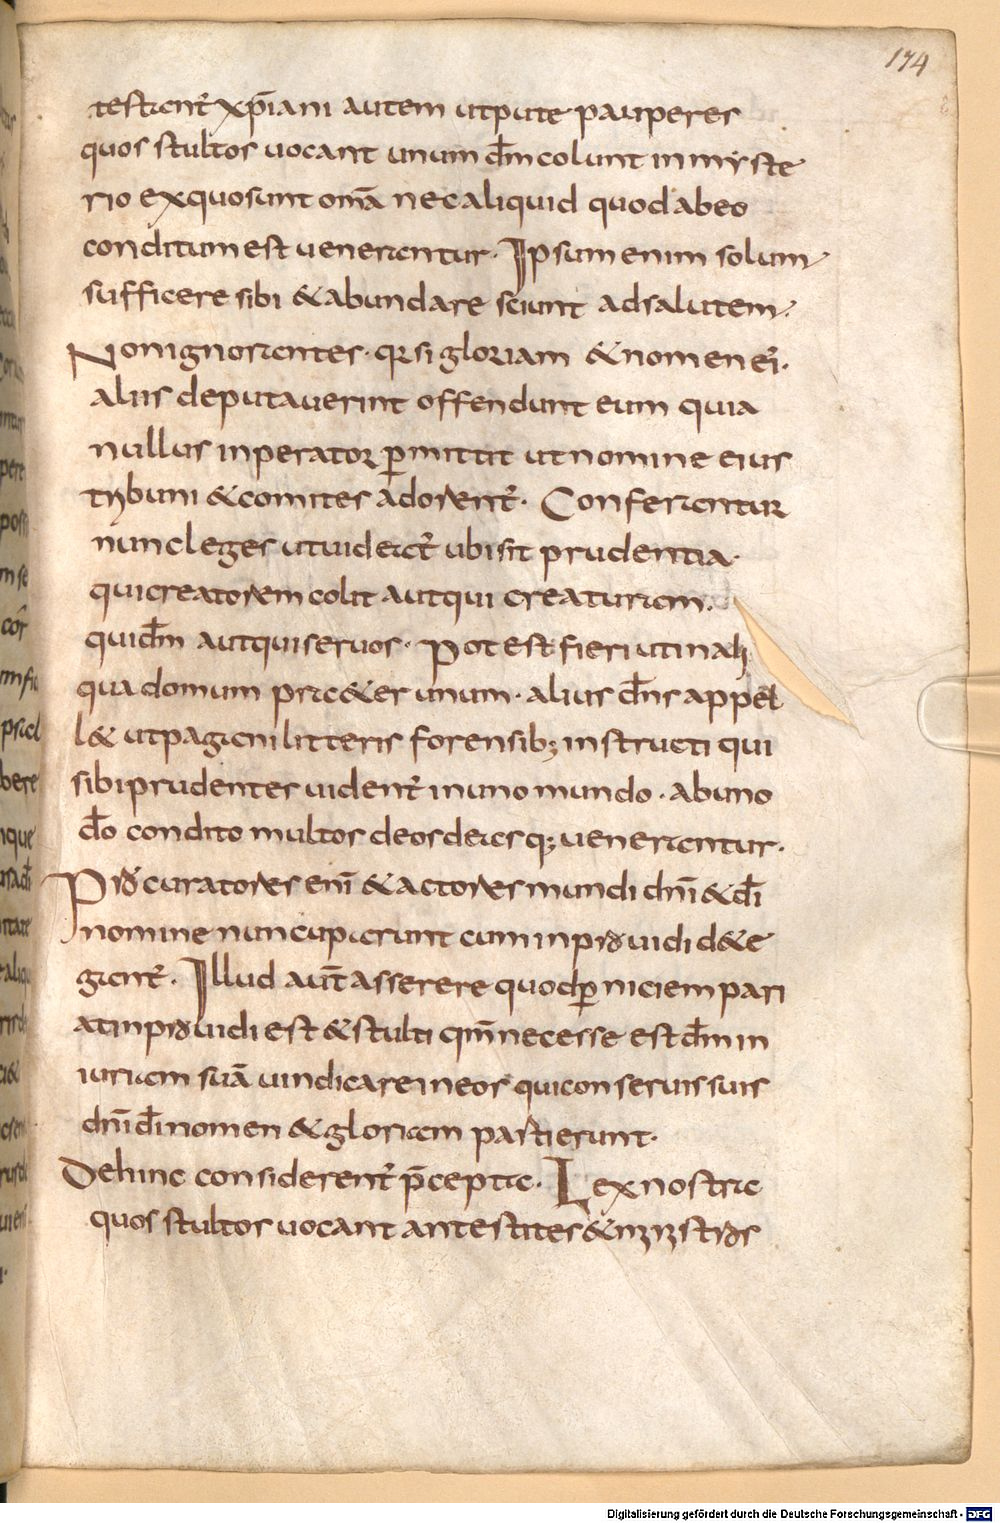 174
testaent̃ xp̃iani autem utpute pauperes
quos stultos uocant unum dm̃ colunt in myste
rio ex quo sunt om̃a nec aliquid quod ab eo
conditum est uenerantur. Ipsum enim solum
sufficere sibi & abundare sciunt ad salutem.
Non ignorantes. qr si gloriam & nomen ei᾽.
aliis deputauerint offendunt eum quia
nullus inperator p̲mittit ut nomine eius
tribuni & comites adorent̃. Conferantur
nunc leges ut uideat̃ ubi sit prudentia.
qui creatorem colit aut qui creaturam.
qui dm̃ aut qui seruos. Potest fieri ut in ali
qua domum praeter unum. alius dn̄s appel
l& ut pagani litteris forensib; instructi qui
sibi prudentes uident̃ in uno mundo. ab uno
do̅ condito multos deos deasq; uenerantur.
Procuratores eni̅ & actores mundi dni̅ & di̅
nomine nuncuparunt cum inprouidi d&e
gant̃. Illud aut̅ asserere quod p̲niciem pari
at inprouidi est & stulti qm̅ necesse est dm̅ in
iuriam sua̅ uindicare in eos qui conseruis suis
dni̅ di̅ nomen & gloriam partierunt.
Dehinc considerent̃ p̅cepta. Lex nostra
quos stultos uocant antestites & ministros
Digitalisierung gefördert durch die Deutsche Forschungsgemeinschaft - DFG